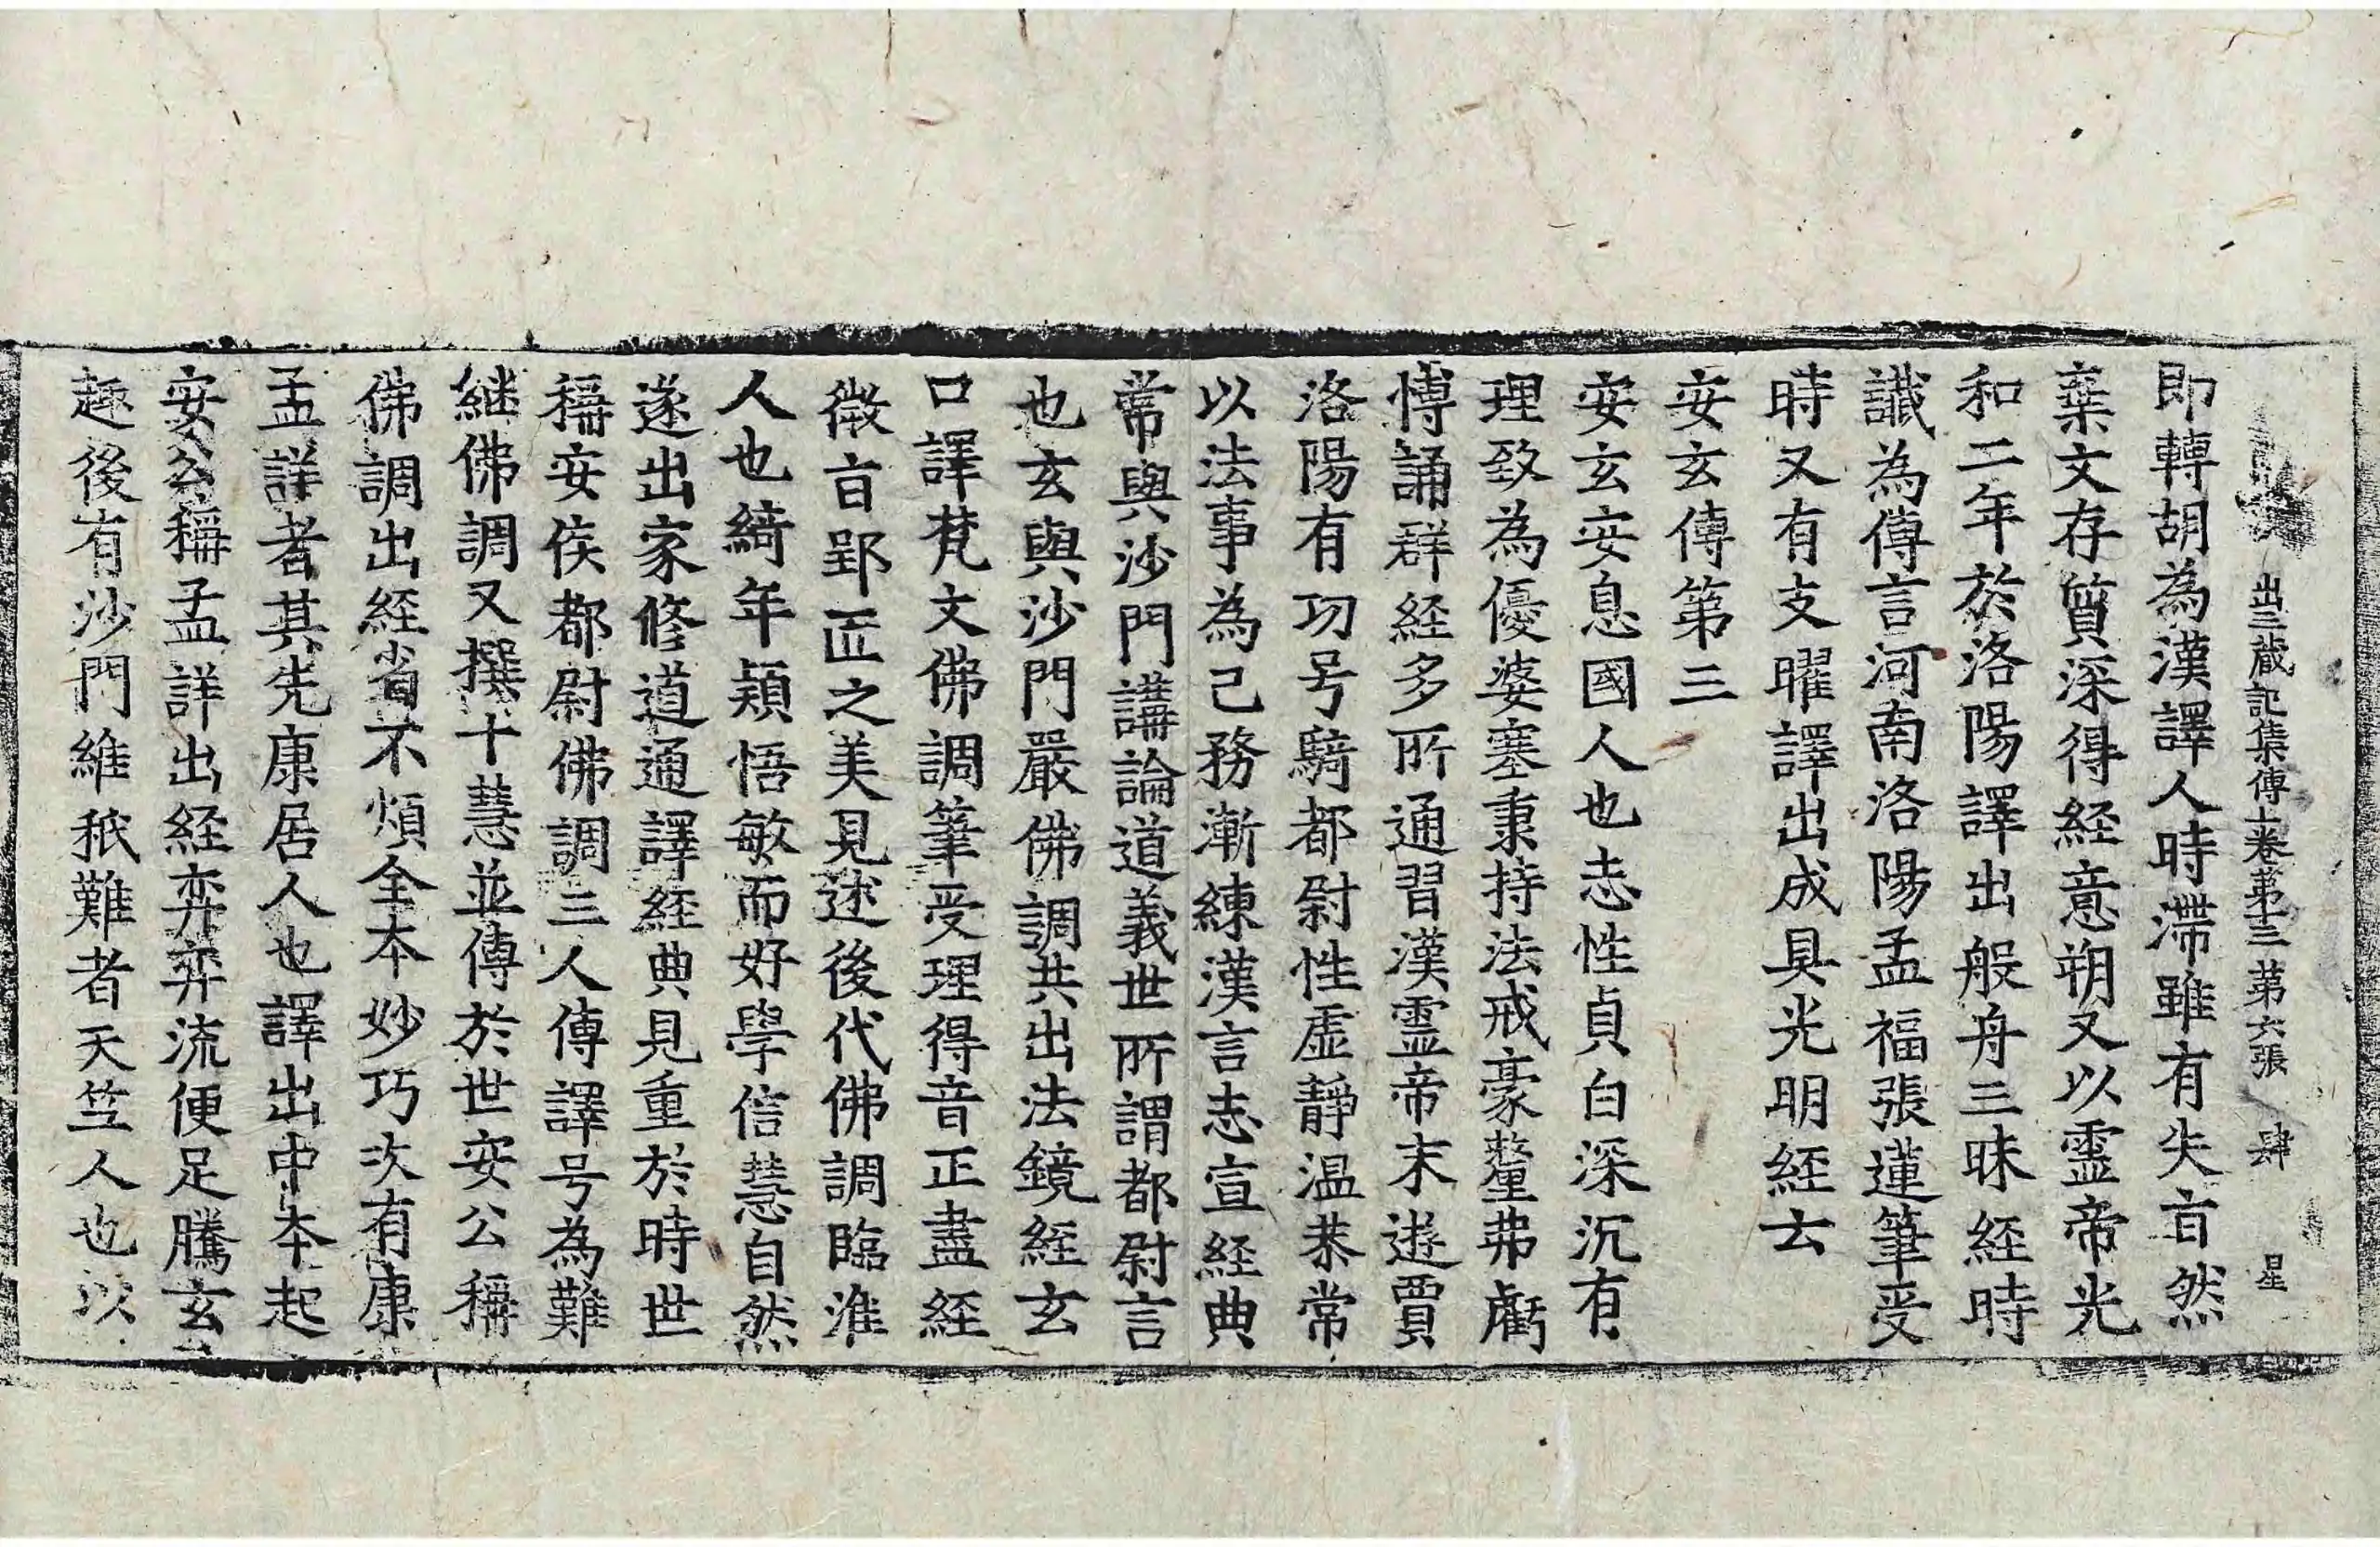 出三蔵記集傳上卷苐十三 苐六張 肆 星
即轉胡為漢譯人時滯雖有失㫖然
棄文存質深得経意朔又以霊帝光
和二年於洛陽譯出般舟三昧経時
讖為傳言河南洛陽孟福張蓮筆受
時又有支曜譯出成具光明経云
安玄傳第三
安玄安息國人也志性貞白深沉有
理致為優婆塞秉持法戒豪氂弗虧
博誦群経多所通習漢霊帝末遊賈
洛陽有功号騎都尉性虛靜温恭常
以法事為己務漸練漢言志宣経典
常與沙門講論道義世所謂都尉言
也玄與沙門嚴佛調共出法鏡経玄
口譯梵文佛調筆受理得音正盡経
微㫖郢匠之美見述後代佛調臨淮
人也綺年穎悟敏而好學信慧自然
遂出家修道通譯経典見重於時世
稱安侯都尉佛調三人傳譯号為難
継佛調又撰十慧並傳於世安公稱
佛調出経省不煩全本妙巧次有康
孟詳者其先康居人也譯出中本起
安公稱孟詳出経弈弈流便足騰玄
趣後有沙門維秖難者天竺人也以